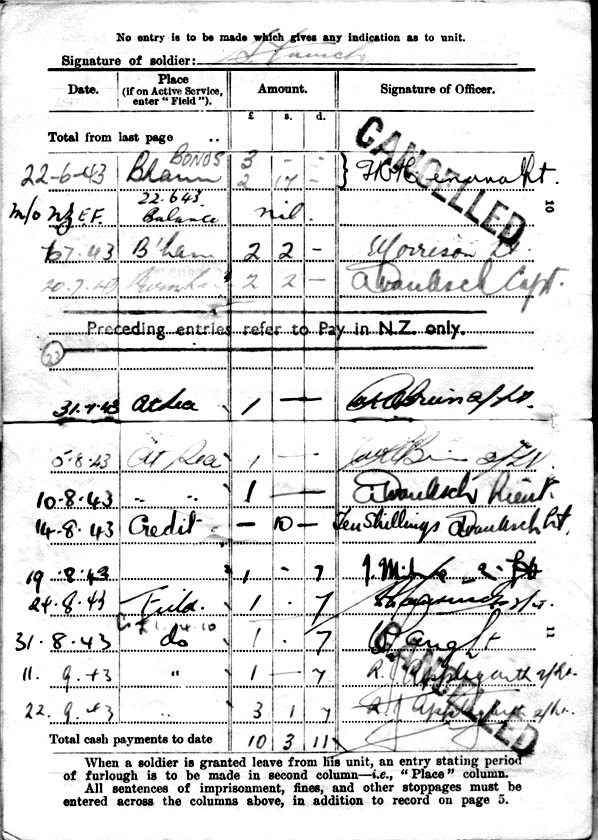 No entry is to be made which gives any indication as to unit.
Signature of soldier:
Date. Place (if on Active Service, enter "Field"). Amount. Signature of Officer.
£ s. d.
Total from last page ..
BONDS 3 - -
22-6-43 Bham 2 17 -
CANCELLED
10
m/o NZEF. 22.6.43
Balance nil.
7.43 B'ham 2 2 - Morrison Lt
20.7.43 2 2 - Capt.
Preceding entries refer to Pay in N.Z. only.
23
31.7.43 At Sea 1 —
5.8.43 At Sea 1 —
10-8-43 " " 1 — Lieut.
14-8-43 Credit - 10 - Ten Shillings Lt.
19.8.43 1 - 7
24.8.43 Field. 1 . 7
31.8.43 do 1 . 7
11
11. 9.43 " 1 - 7
22.9.43 " 3 1 7
CANCELLED
Total cash payments to date 10 3 11
When a soldier is granted leave from his unit, an entry stating period
of furlough is to be made in second column—i.e., "Place" column.
All sentences of imprisonment, fines, and other stoppages must be
entered across the columns above, in addition to record on page 5.